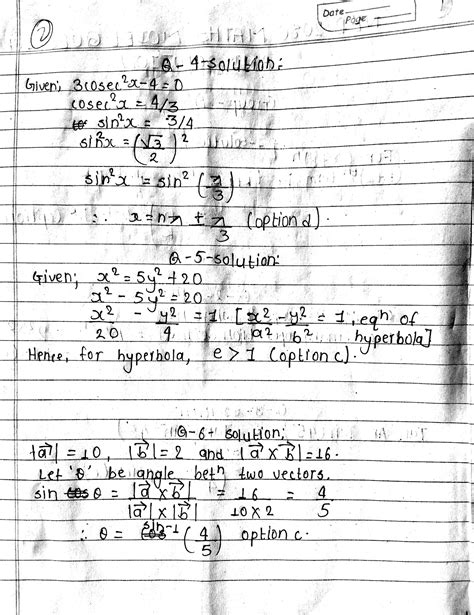 Date
Page
2
Q-4-solution:
Given; 3cosec²x-4=0
cosec²x = 4/3
sin²x = 3/4
sin²x = (√3/2)²
sin²x = sin²(π/3)
∴ x = nπ ± π/3 (option d).
Q-5-solution:
Given; x² = 5y² + 20
x² - 5y² = 20
x²/20 - y²/4 = 1 [x²/a² - y²/b² = 1, eqⁿ of hyperbola]
Hence, for hyperbola, e > 1 (option c).
Q-6 solution;
|a⃗| = 10, |b⃗| = 2 and |a⃗ × b⃗| = 16.
Let 'θ' be angle betⁿ two vectors.
sin θ = |a⃗ × b⃗| / |a⃗| × |b⃗| = 16 / 10×2 = 4/5
∴ θ = sin⁻¹(4/5) option c.